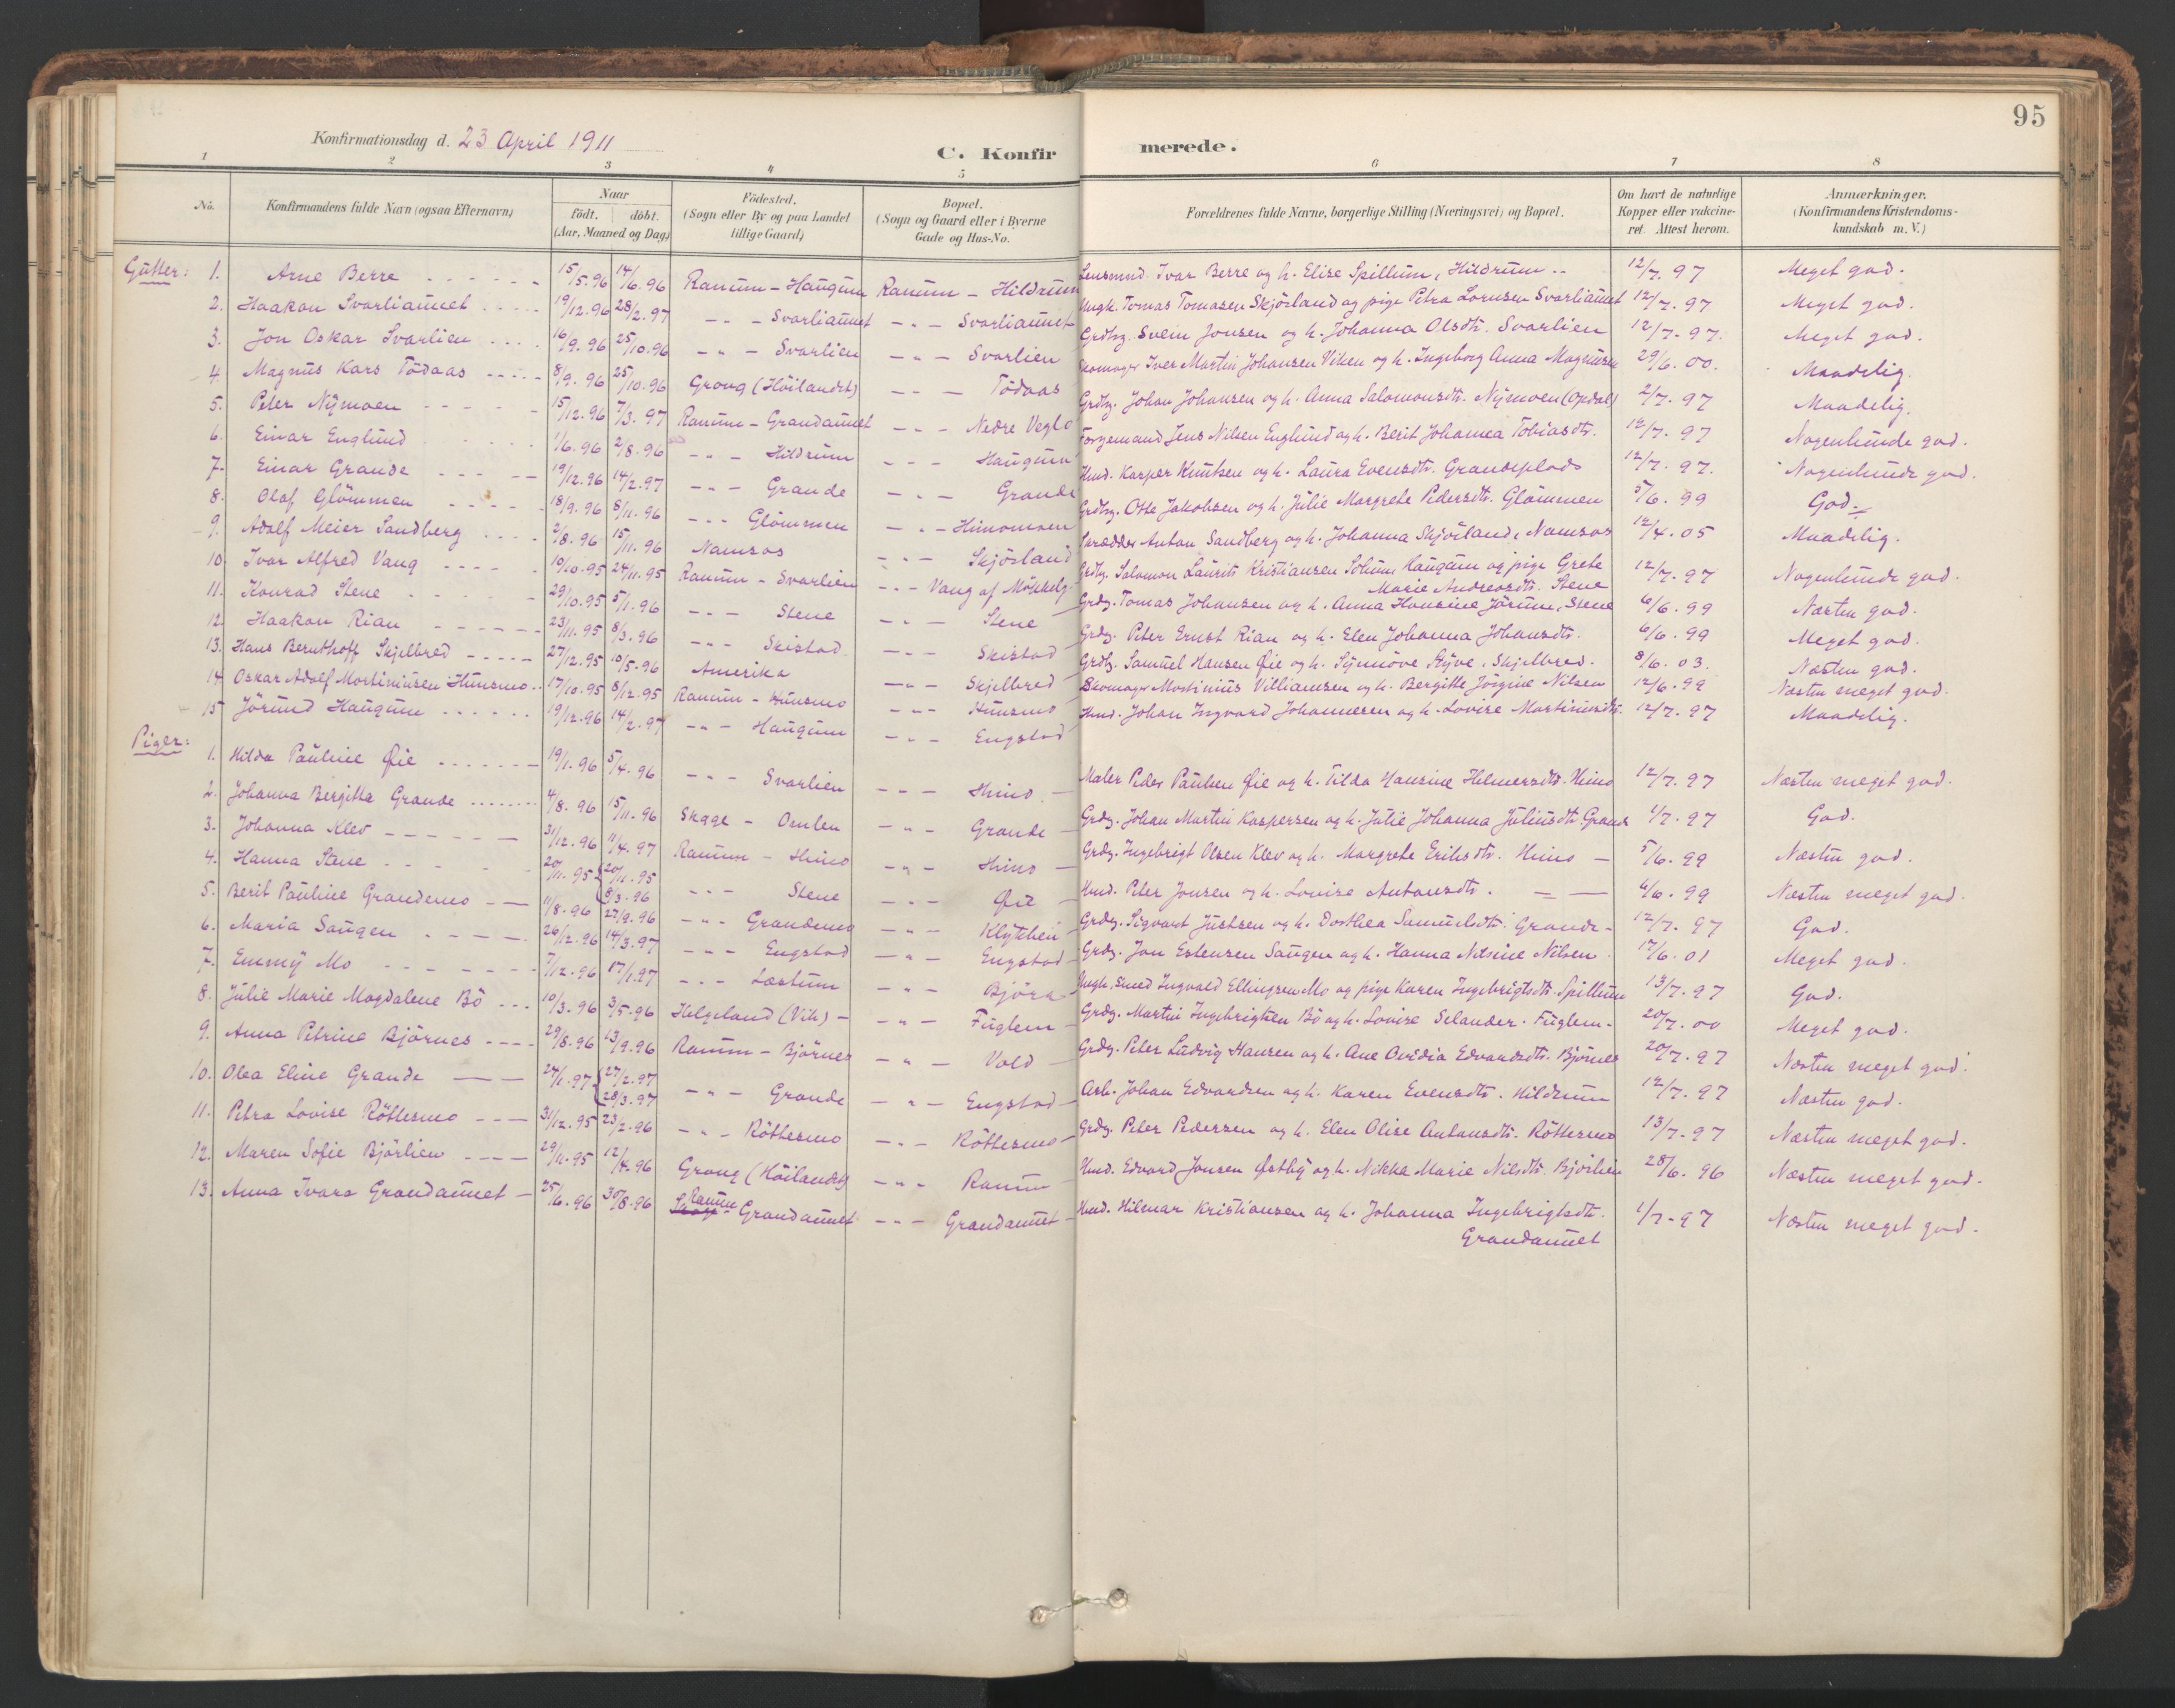 95
Konfirmationsdag d. 23 April 1911
C. Konfirmerede.
1 2 3 4 5 6 7 8
No. Konfirmandens fulde Navn (ogsaa Efternavn) Naar født. døbt. (Aar, Maaned og Dag) Födested. (Sogn eller By og paa Landet tillige Gaard) Bopæl. (Sogn og Gaard eller i Byerne Gade og Hus-No. Forældrenes fulde Navne, borgerlige Stilling (Næringsvei) og Bopæl. Om havt de naturlige Kopper eller vakcineret. Attest herom. Anmærkninger. (Konfirmandens Kristendomskundskab m. V.)
Gutter: 1. Arne Berre 15/5.96 14/6.96 Ranum - Haugum Ranum - Hildrum Lensmnd. Ivar Berre og h. Elise Spillum, Hildrum 12/7.97 Meget god.
2. Haakon Svarliaunet 19/12.96 28/2.97 -"- Svarliaunet -"- Svarliaunet Ungk. Tomas Tomasen Skjörland og pige Petra Lornsen Svarliaunet 12/7.97 Meget god.
3. Jon Oskar Svarlien 16/9.96 25/10.96 -"- Svarlien -"- Svarlien Grdbrg. Svein Jonsen og h. Johanna Olsdtr. Svarlien 12/7.97. Meget god.
4. Magnus Kars Tödaas 8/9.96 25/10.96 Grong (Höilandet) -"- Tödaas Skomager Iver Martin Johansen Viken og h. Ingeborg Anna Magnusen 29/6.00. Maadelig.
5. Peter Nymoen 15/12.96 7/3.97 Ranum - Grandaunet -"- Nedre Veglo Grdbg. Johan Johansen og h. Anna Salomonsdtr. Nymoen (Opdal) 2/7.97 Maadelig.
6. Einar Englund 1/6.96 2/8.96 -"- Hildrum -"- Haugum Forgemand Jens Nilsen Englund og h. Berit Johanna Tobiasdtr. 12/7.97 Nogenlunde god.
7. Einar Grande 19/12.96 14/2.97 -"- Grande -"- Grande Hmd. Kasper Knutsen og h. Laura Evensdtr. Grandeplads 12/7.97. Nogenlunde god.
8. Olaf Glömmen 18/9.96 8/11.96 -"- Glömmen -"- Himomoen Grdbg. Otte Jakobsen og h. Julie Margrete Pedersdtr. Glömmen 5/6.99 God.
9. Adolf Meier Sandberg 2/8.96 15/11.96 Namsos -"- Skjörland Anton Sandberg og h. Johanna Skjörland, Namsos 12/4.05 Maadelig.
10. Ivar Alfred Vang 10/10.95 24/11.95 Ranum - Svarlien -"- Vang af Mökkelg. Grdbg. Salomon Laurits Kristiansen Solum, Haugum og pige Grete Marie Andreasdtr. Stene 12/7.97 Nogenlunde god.
11. Konrad Stene 29/10.95 5/1.96 -"- Stene -"- Stene Grdg. Tomas Johansen og h. Anna Hansine Jörum, Stene 6/6.99 Næsten god.
12. Haakon Rian 23/11.95 8/3.96 -"- Skistad -"- Skistad Grdg. Peter Ernst Rian og h. Elen Johanna Johansdtr. 6/6.99 Meget god.
13. Hans Bernthoff Skjelbred 27/12.95 10/5.96 Amerika -"- Skjelbred Grdbg. Samuel Hansen Øie og h. Synnöve Styve, Skjelbred. 8/6.03. Næsten god.
14. Oskar Adolf Mortiniusen Hunsmo 17/10.95 8/12.95 Ranum - Hunsmo -"- Hunsmo Skomager Mortinius Villiamsen og h. Bergitte Jörgine Nilsen 12/6.99 Næsten meget god.
15 Jörund Haugum 19/12.96 14/2.97 -"- Haugum -"- Engstad Hmd. Johan Ingvard Johannesen og h. Lovise Martinusdtr. 12/7.97 Maadelig.
Piger: 1. Hilda Pauline Øie 19/1.96 5/4.96 -"- Svarlien -"- Himo. Maler Peder Paulsen Øie og h. Tilda Hansine Helmersdtr. Himo 12/7.97 Næsten meget god.
2. Johanna Bergitta Grande 4/8.96 15/11.96 Skage - Omlen -"- Grande Grdg. Johan Martin Kaspersen og h. Julie Johanna Juliusdtr. Grande 1/7.97 God.
3. Johanna Klev 31/12.96 11/4.97 Ranum - Himo -"- Himo Grdg. Ingebrigt Olsen Klev og h. Margrete Eriksdtr. Himo 5/6.99 Næsten god.
4. Hanna Stene 20/11.95 20/11.95 8/3.96 -"- Stene -"- Øie Hmd. Peter Jonsen og h. Lovise Antonsdtr. 6/6.99 Næsten meget god.
5. Berit Pauline Grandemo 11/8.96 27/9.96 -"- Grandemo -"- Klykken Grdg. Sigvart Justsen og h. Dorthea Samuelsdtr. Grande 12/7.97 God.
6. Maria Saugen 26/12.96 14/3.97 -"- Engstad -"- Engstad Grdg. Jon Estensen Saugen og h. Hanna Nilsine Nilsen. 17/6.01 Meget god.
7. Emmy Mo 7/12.96 17/1.97 -"- Læstum -"- Björa Ungk. Smed Ingvald Ellingsen Mo og pige Karen Ingebrigtsdtr. Spillum 13/7.97 God.
8. Julie Marie Magdalene Bö 10/3.96 3/5.96 Helgeland (Vik) -"- Fuglem Grdg. Martin Ingebrigtsen Bö og h. Lovise Selander. Fuglem. 20/7.00 Meget god.
9. Anna Petrine Björnes 29/8.96 13/9.96 Ranum - Björnes -"- Vold Grdg. Peter Ludvig Hansen og h. Ane Ovidia Edvardsdtr. Björnes 20/7.97 Næsten meget god.
10. Olea Eline Grande 27/1.97 27/2.97 28/3.97 -"- Grande -"- Engstad Arb. Johan Edvardsen og h. Karen Evensdtr. Hildrum 12/7.97 Næsten god.
11. Petra Lovise Röttesmo 31/12.95 23/2.96 -"- Röttesmo -"- Röttesmo Grdg. Peter Pedersen og h. Elen Olise Antonsdtr. Röttesmo 13/7.97 Næsten meget god.
12. Maren Sofie Björlien 29/11.95 12/4.96 Grong (Höilandet) -"- Ranum Hmd. Edvard Jonsen Østby og h. Nikka Marie Nilsdtr. Björlien 28/6.96 Næsten meget god.
13. Anna Ivara Grandaunet 25/6.96 30/8.96 Ranum Grandaunet -"- Grandaunet Hmd. Hilmar Kristiansen og h. Johanna Ingebrigtsdtr. Grandaunet 1/7.97 Næsten meget god.